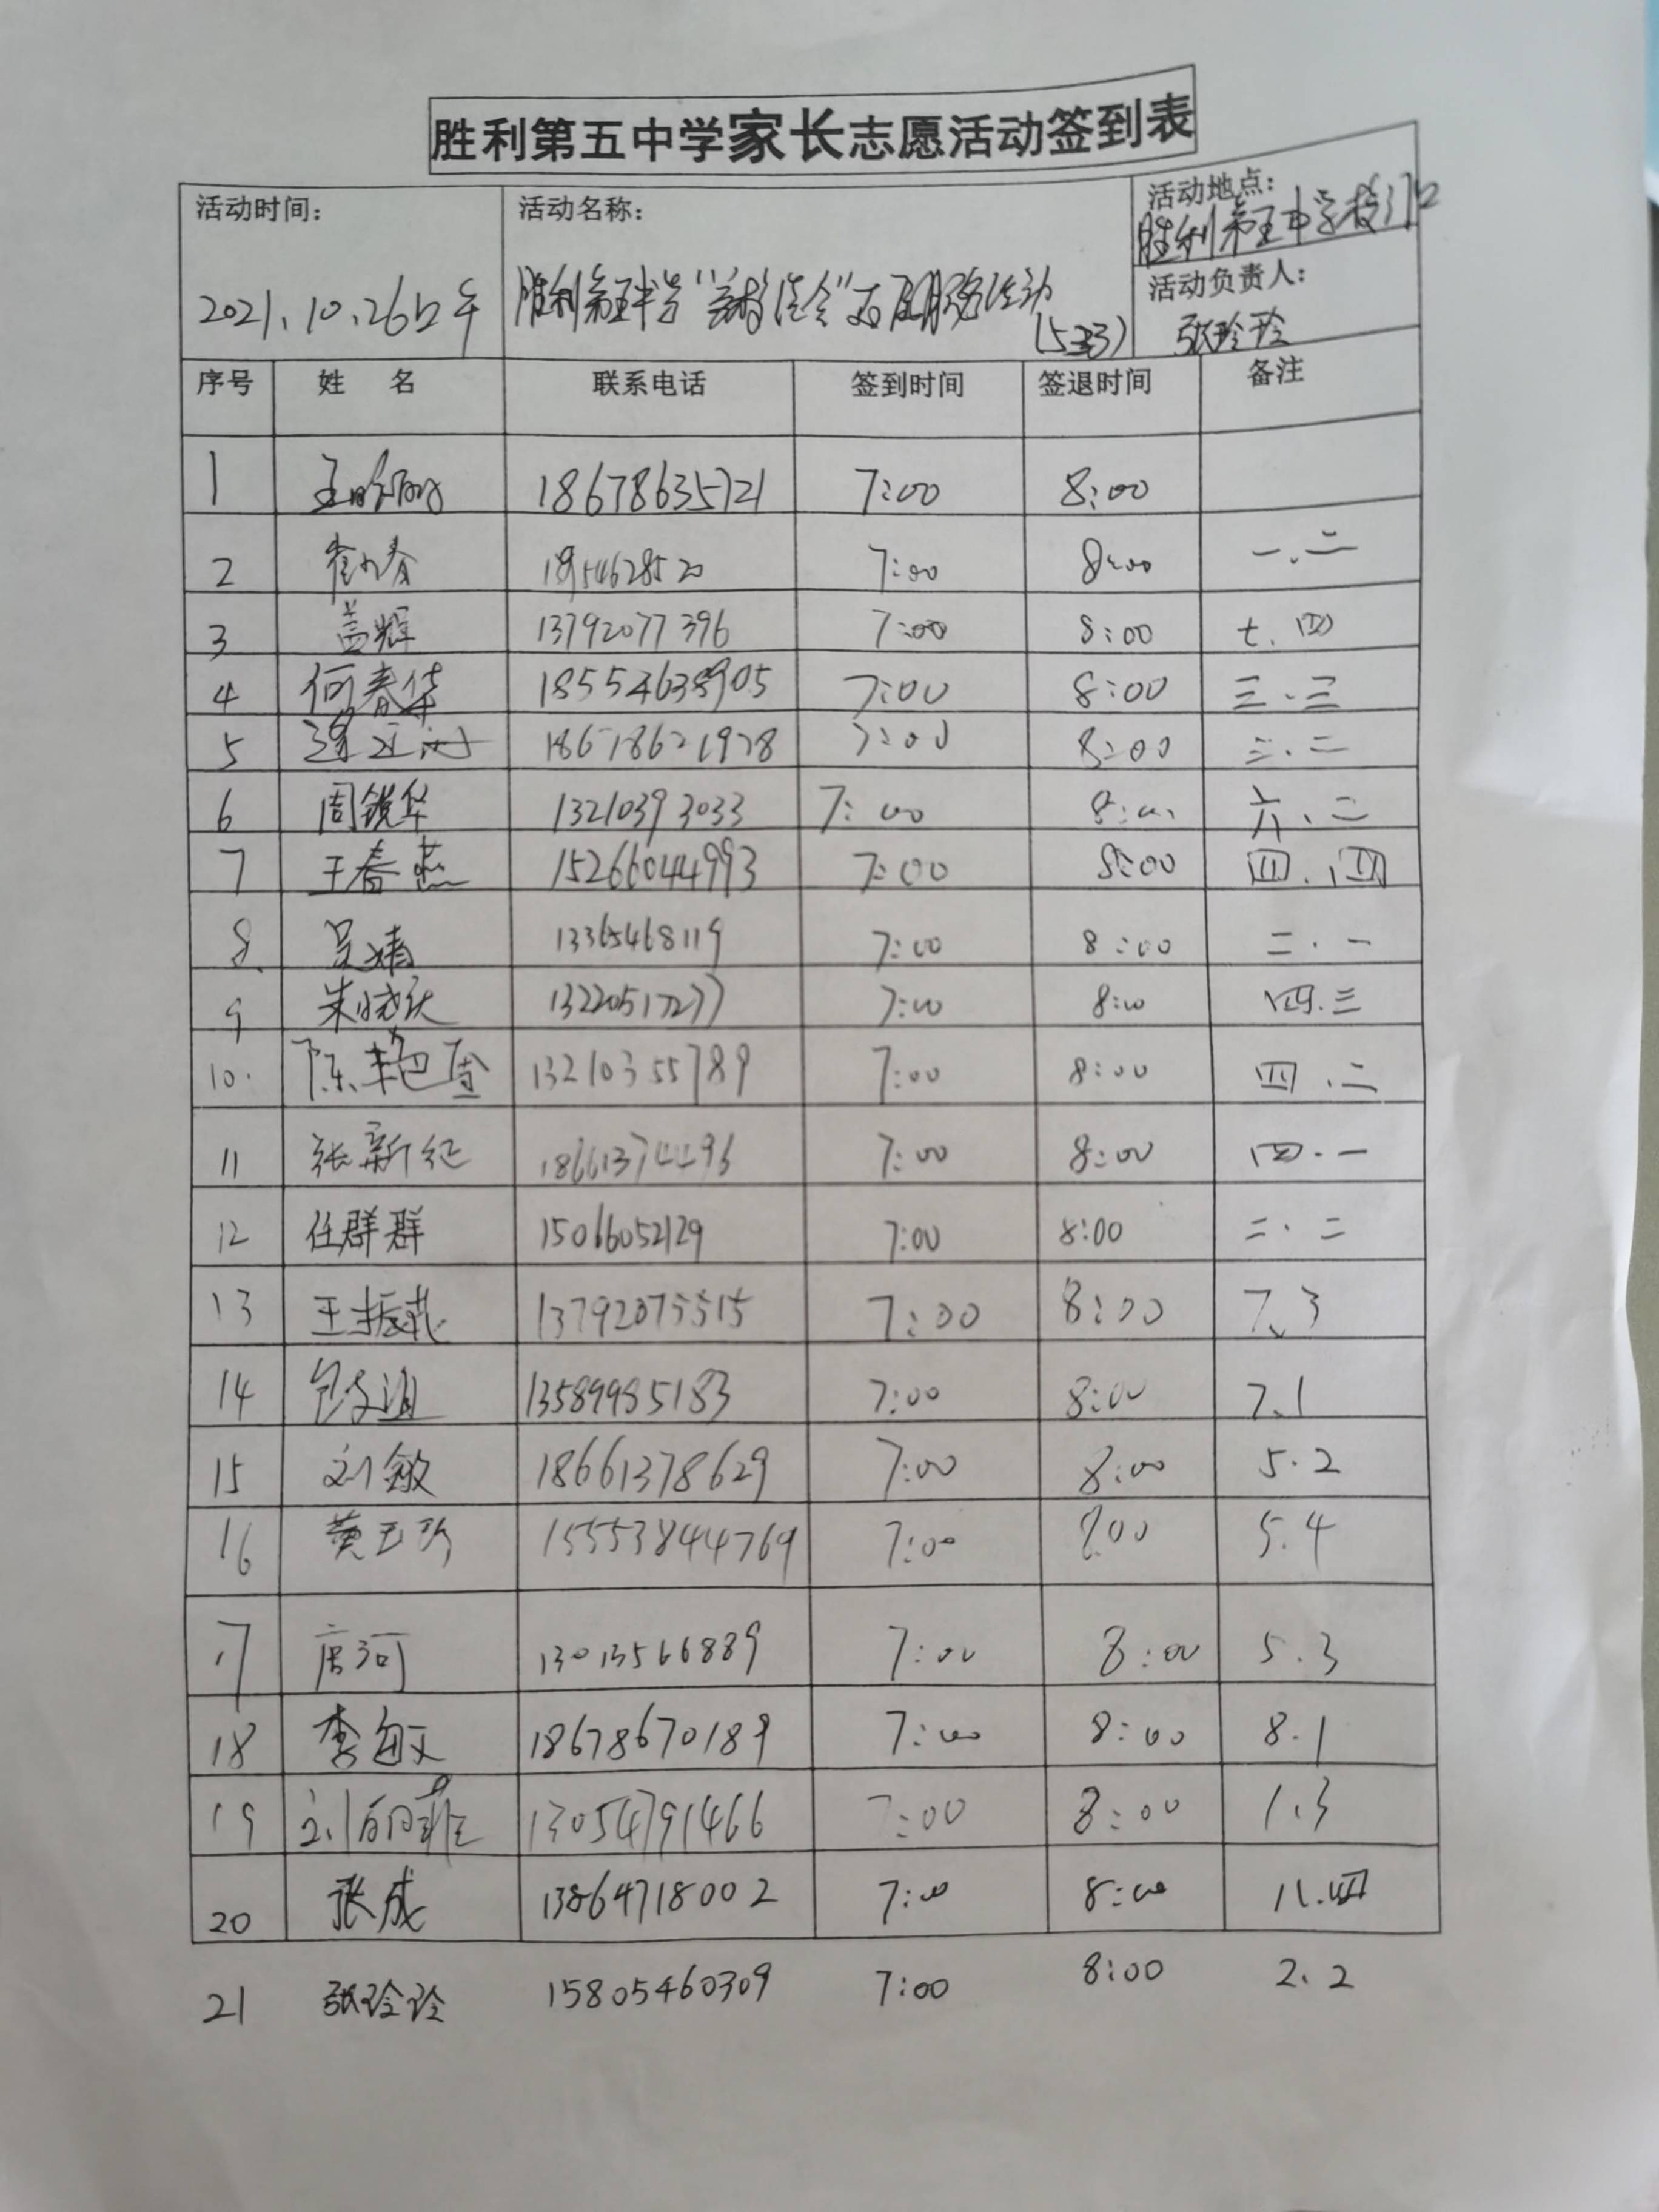 胜利第五中学家长志愿活动签到表
活动时间： 活动名称： 活动地点：
胜利第五中学校门口
2021.10.26上午 胜利第五中学 志愿服务活动 活动负责人：
张玲玲
序号 姓 名 联系电话 签到时间 签退时间 备注
1 18678635721 7:00 8:00
2 7:00 8:00 一.二
3 盖辉 13792077396 7:00 8:00 七.四
4 何春华 7:00 8:00 三.三
5 18678621978 7:00 8:00 三.二
6 周锐华 13210393033 7:00 8:00 六.二
7 王春燕 15266044993 7:00 8:00 四.四
8 吴婧 13365468119 7:00 8:00 二.一
9 朱晓庆 13220517277 7:00 8:00 四.三
10. 陈艳 13210355789 7:00 8:00 四.二
11 张新红 18661374496 7:00 8:00 四.一
12 任群群 15066052129 7:00 8:00 二.二
13 王振花 13792075515 7:00 8:00 7、3
14 包文娟 13589985183 7:00 8:00 7、1
15 刘敏 18661378629 7:00 8:00 5.2
16 15553844769 7:00 8:00 5.4
17 13013566889 7:00 8:00 5.3
18 李敏 18678670189 7:00 8:00 8.1
19 13054791466 7:00 8:00 1.3
20 张成 13864718002 7:00 8:00 八.四
21 张玲玲 15805460309 7:00 8:00 2.2